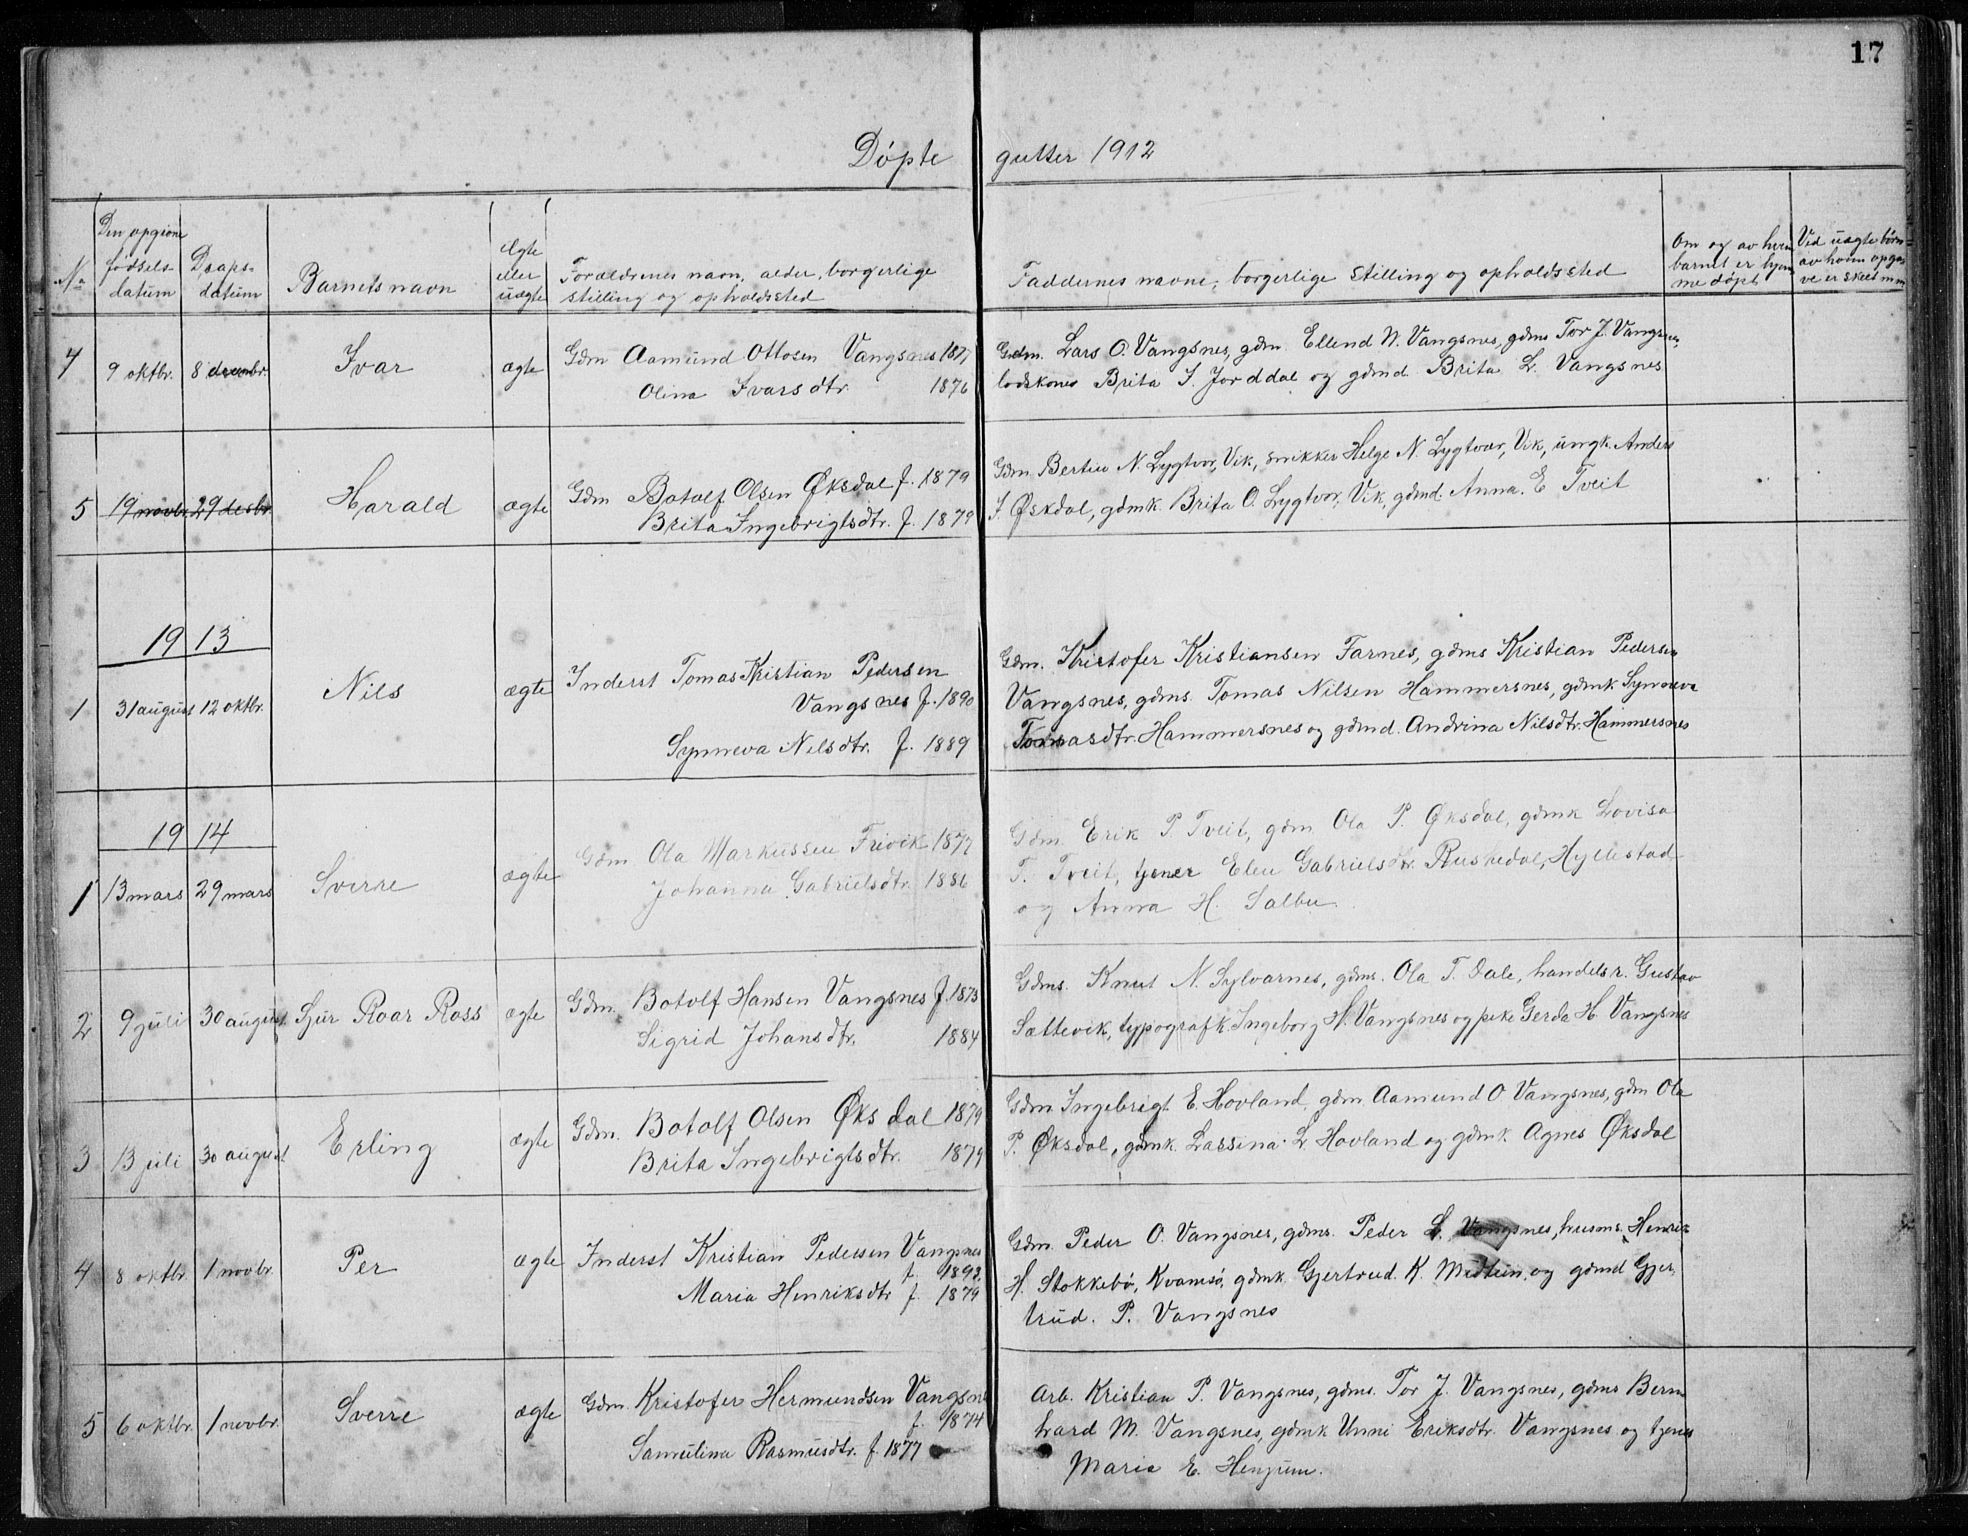 17
Døpte gutter 1912
No
Den opgivne fødselsdatum
Daapsdatum
Barnets navn
Ægte eller uægte
Forældrenes navn, alder, borgerlige
stilling og opholdssted
Faddernes navne, borgerlige stilling og opholdssted
Om og av hvem
barnet er hjem
me døpt
Ved uægte børn
av hvem opga-
ve er skeet m.m
4 9 oktbr. 8 decembr. Ivar ægte Gdm Aamund Ottosen Vangsnes 1877
Olina Ivarsdtr 1876
Gdm. Lars O. Vangsnes, gdm. Ellend N. Vangsnes, gdms Tor J. Vangsnes,
lodskone Brita I. Jorddal og gdmd. Brita L. Vangsnes
5 19 novbr. 29 desbr. Harald ægte Gdm Botolf Olsen Øksdal f. 1879
Brita Ingebrigtsdtr. f. 1879
Gdm. Berteu N. Lygtvor, Vik, snikker Helge N. Lygtvor, Vik, ungk. Anders
I. Øskdal, gdmk. Brita O. Lygtvor, Vik, gdmd. Anna. E Tveit
1913
1 31 august 12 oktbr. Nils ægte Inderst Tomas Kristian Pedersen
Vangsnes f. 1890
Synneva Nilsdtr. f. 1889
Gdm. Kristofer Kristiansen Farnes, gdms Kristian Pedersen
Vangsnes, gdms. Tomas Nilsen Hammersnes, gdmk Synneva
Tomasdtr. Hammersnes og gdmd. Andrina Nilsdtr. Hammersnes
1914
1 13 mars 29 mars Sverre ægte Gdm Ola Markussen Frivik 1877
Johanna Gabrielsdtr. 1886
Gdm. Erik P. Tveit, gdm. Ola P. Øksdal, gdmk Lovisa
T. Tveit, tjener Eleu Gabrielsdtr. Rushedal, Hyllestad
og Anna H. Salbu.
2 9 juli 30 august Sjur Roar Ross ægte Gdm. Botolf Hansen Vangsnes f. 1873
Sigrid Johansdtr. 1884
Gdms. Knut N. Sylvarnes, gdms. Ola T. Dale, handelsr. Gustav
Sattevik, typografk. Ingeborg H. Vangsnes og pike Gerda H. Vangsnes
3 13 juli 30 august Erling ægte Gdm. Botolf Olsen Øksdal 1879
Brita Ingebrigtsdtr. 1879
Gdm Ingebrigt E. Hovland, gdm. Aamund O Vangsnes, gdm Ola
P. Øksdal, gdmk. Lassina L. Hovland og gdmk. Agnes Øksdal
4 8 oktbr. 1 novbr. Per ægte Inderst Kristian Pedersen Vangsnes
f. 1893.
Maria Henriksdtr f. 1879
Gdm. Peder O. Vangsnes, gdms. Peder L. Vangsnes, husms. Henrik
H. Stokkebø, Kvamsø, gdmk. Gjertrud K. Midtun og gdmd Gjer-
trud. P. Vangsnes
5 6 oktbr. 1 novbr. Sverre ægte Gdm. Kristofer Hermundsen Vangsnes
f. 1874
Samulina Rasmusdtr. f. 1877
Arb. Kristian P. Vangsnes, gdms. Tor J. Vangsnes, gdms Bern-
hard M. Vangsnes, gdmk Unni Eriksdtr. Vangsnes og tjener
Maria E. Henjum.